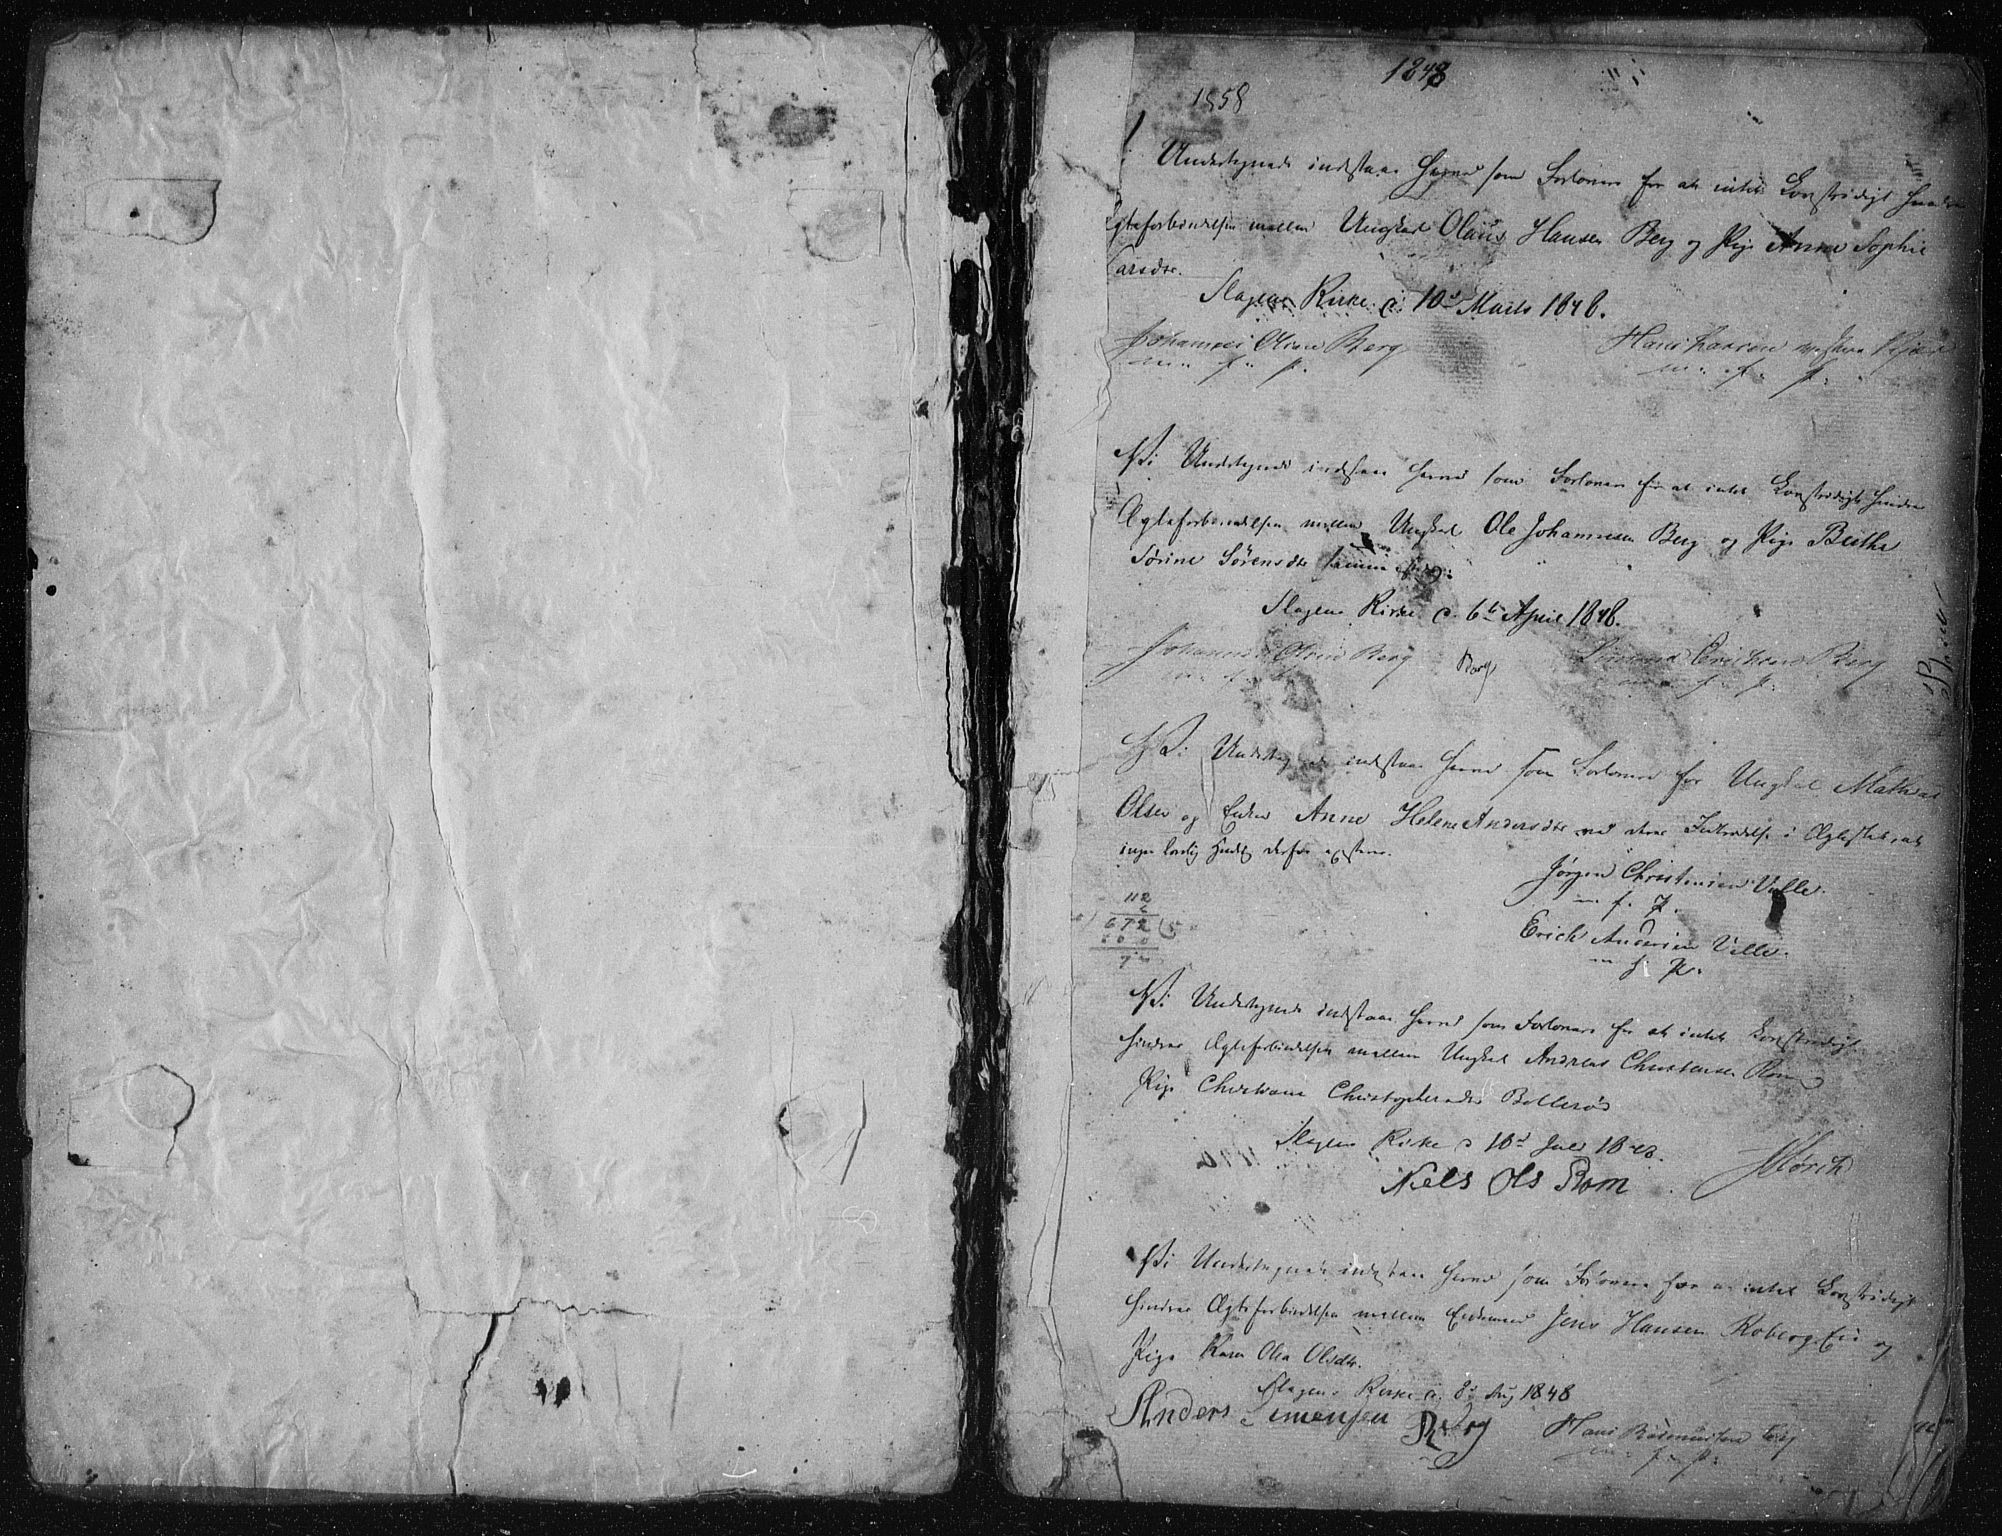 1848
1858
Vi Undertegnede indstaae herved som Forlovere for at intet Lovstridigt hindrer
Ægteforbindelsen mellem Ungkarl Olaus Hansen Berg og Pige Anne Sophie
Larsdtr.
Slagens Kirke d. 10de Marts 1848.
Johannes Olsen Berg Hans Larsen
m. f. p. m. f. p.
Vi Undertegnede indstaae herved som Forlovere for at intet Lovstridigt hindrer
Ægteforbindelsen mellem Ungkarl Ole Johannesen Berg og Pige Berthe
Sørine Sørensdtr
Slagens Kirke d. 6te April 1848.
Johannes Olsen Berg Berg Simend Erichsen Berg
m. f. p. m. f. p.
Vi Undertegnede indstaae herved som Forlovere for Ungkarl Mathias
Olsen og Enken Anne Helene Andersdtr ved deres Indtrædelse i Ægtestand, at
ingen lovlig Hindring derfor existerer.
Jørgen Christensen Velle.
m. f. P.
112
6
672 (5
600
72
Erich Andersen Velle.
m. f. P.
Vi Undertegnede indstaae herved som Forlovere for at intet Lovstridigt
hindrer Ægteforbindelsen mellem Ungkarl Andreas Christensen Rom og
Pige Christiane Christophersdtr Bollerøs
Slagens Kirke d. 10de Juli 1848.
Niels Ols Rom
Vi Undertegnede indstaae herved som Forlovere for at intet Lovstridigt
hindrer Ægteforbindelsen mellem Enkemand Jens Hansen Roberg Eie og
Pige Karen Olea Olsdtr.
Slagens Kirke d. 8de Aug 1848
Anders Simensen Berg Hans Rasmussen
m. f. p.